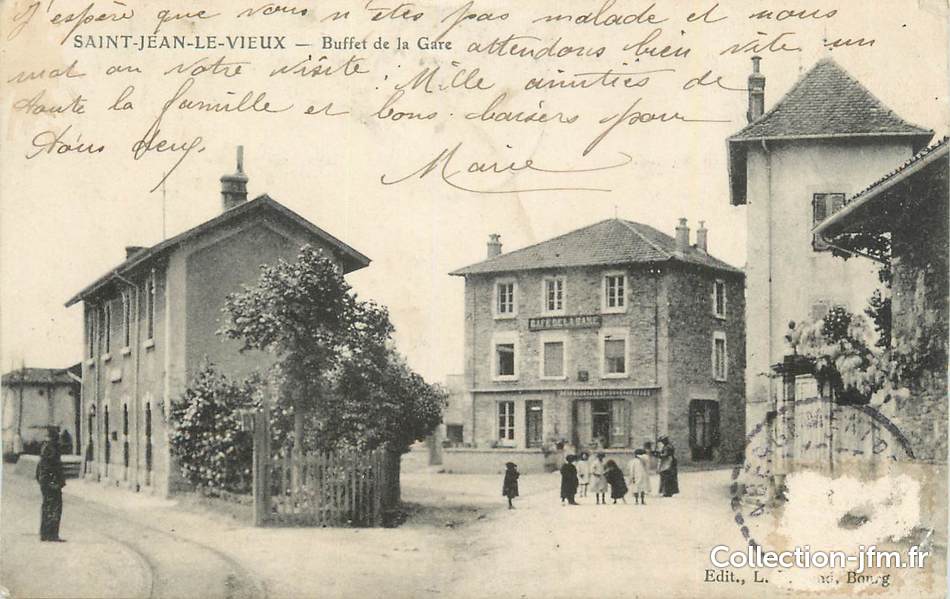 J'espère que vous n'êtes pas malade et nous
SAINT-JEAN-LE-VIEUX — Buffet de la Gare
attendons bien vite un
mot ou votre visite. Mille amitiés de
toute la famille et bons baisers pour
vous deux.
Marie
CAFE DE LA GARE
Collection-jfm.fr
Edit., L. Bourg